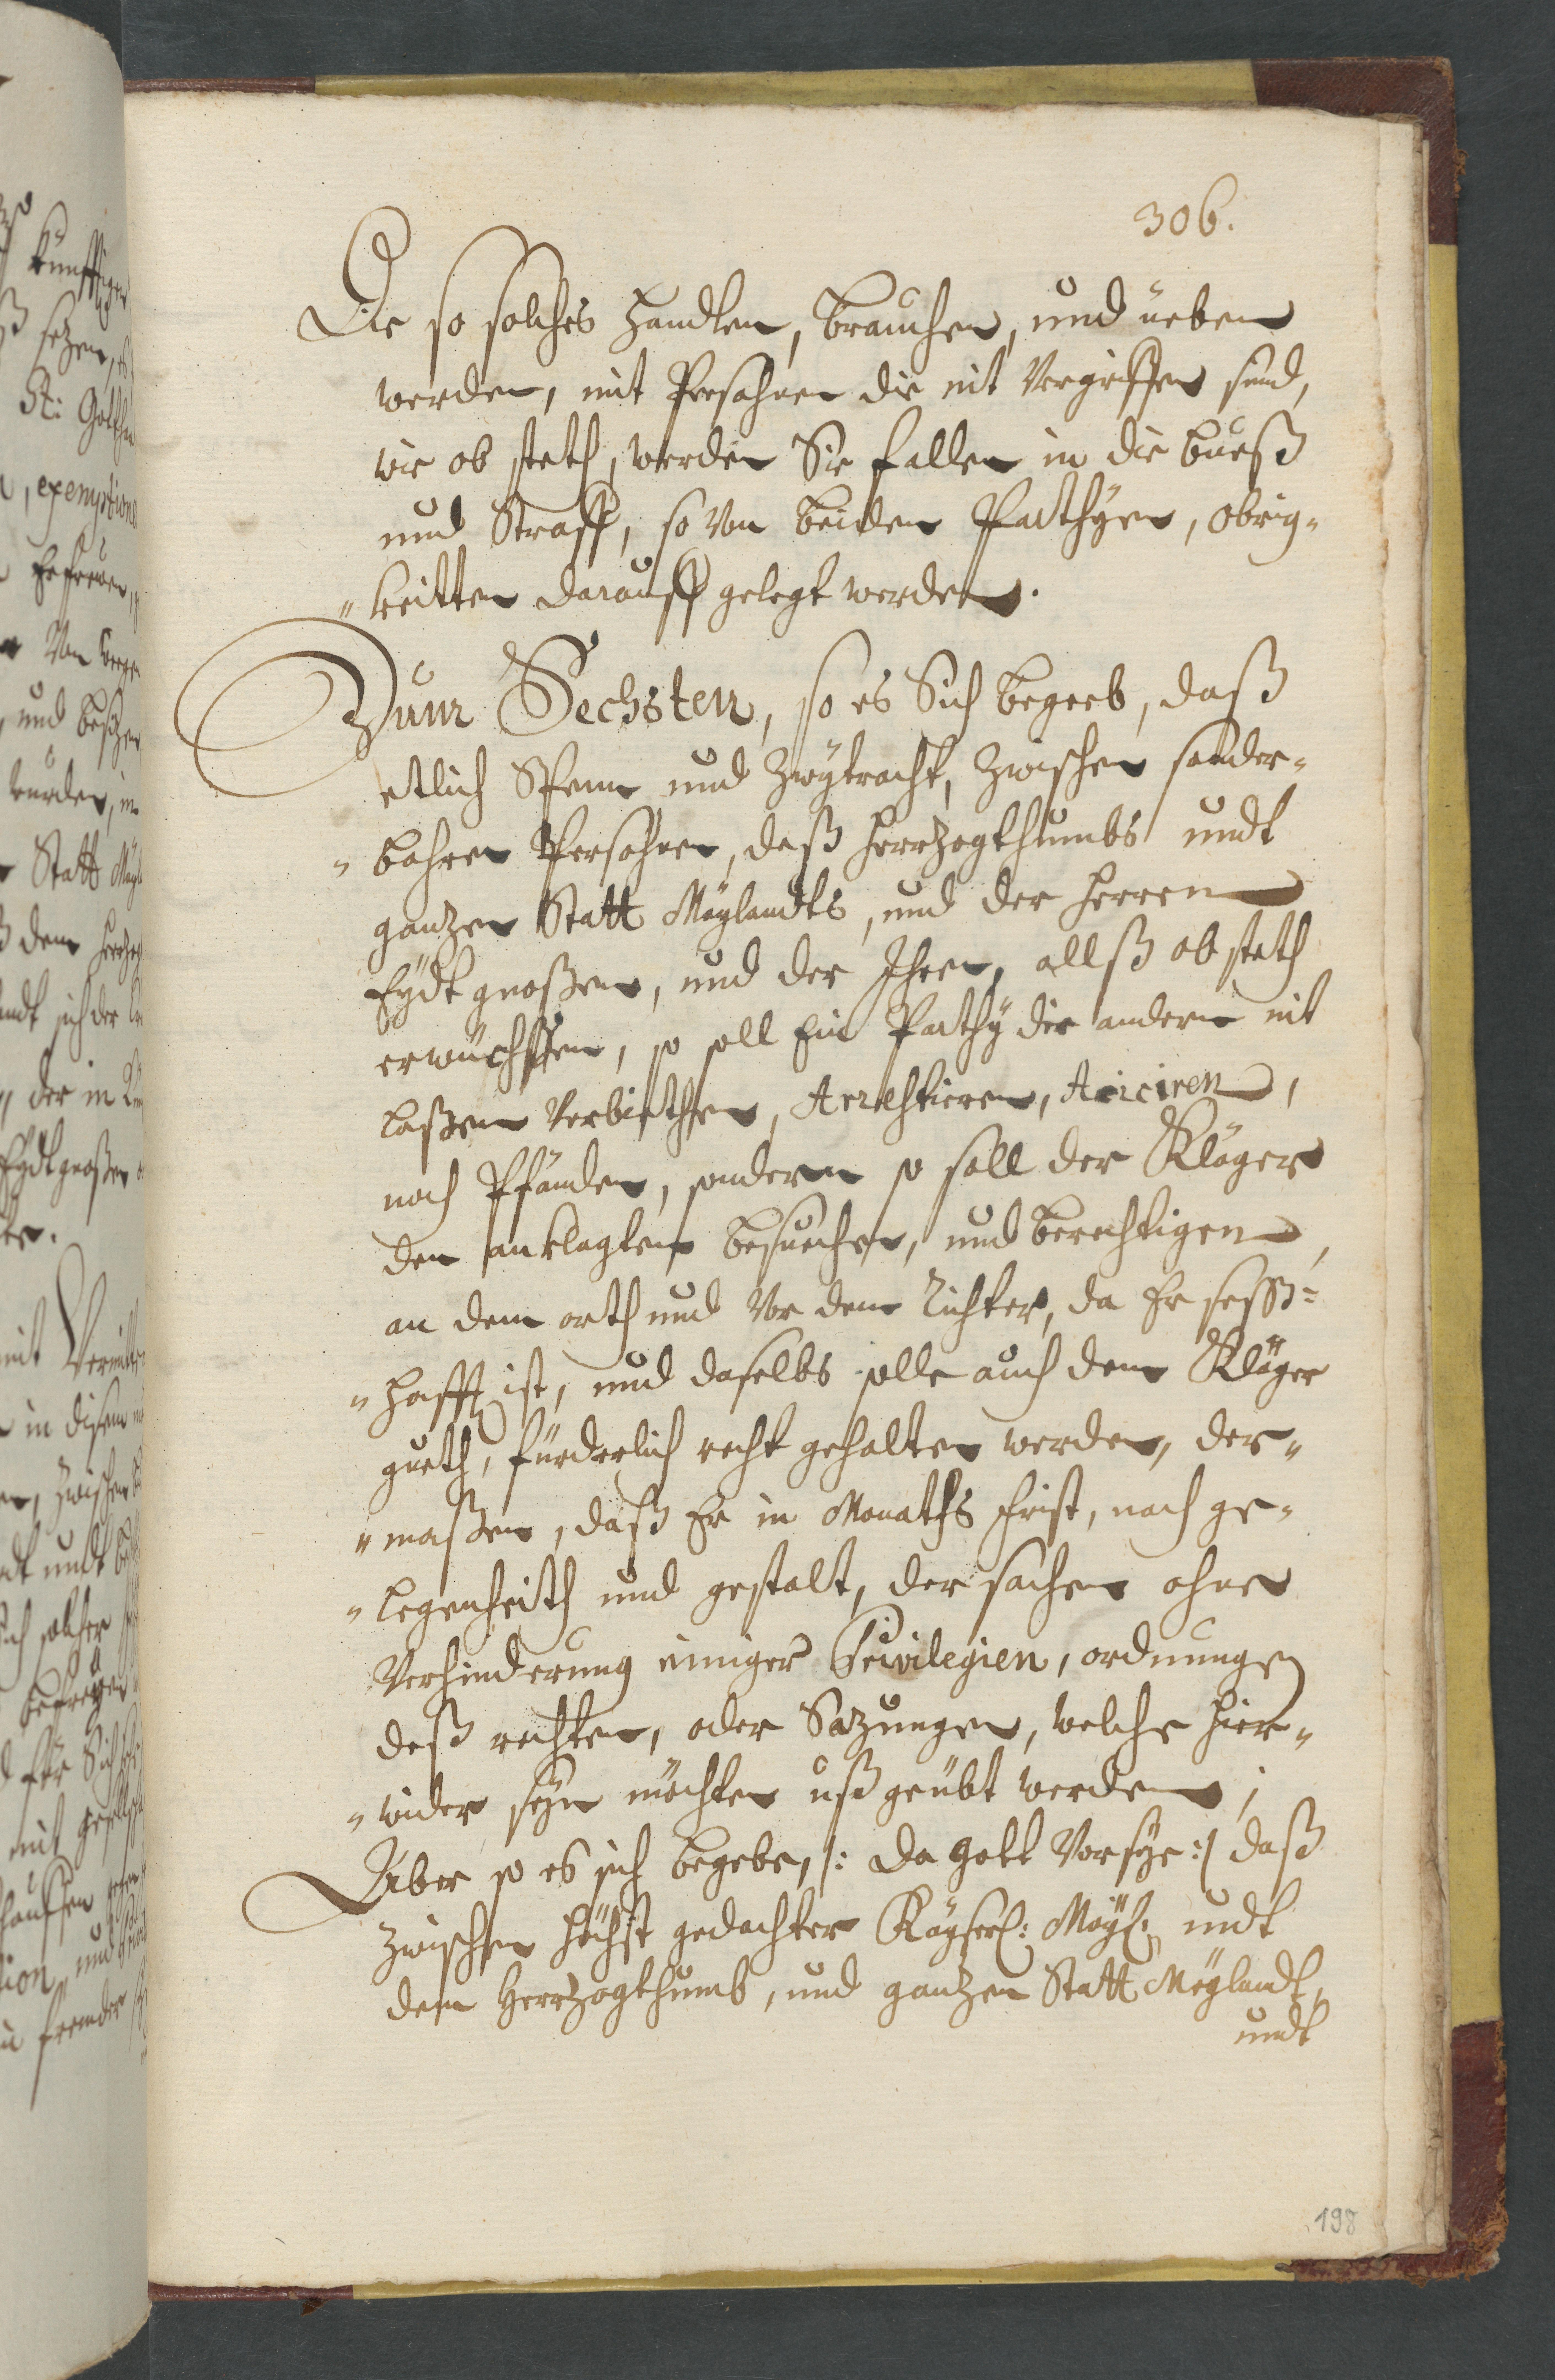 306.
Die so solches handlen, brauchen, und ueben
werden, mit Persohnen die nit Vergriffen sind,
wie ob steth, werden Sie fallen in die bueß
und Straff, so von beiden Parthyen, obrig„
„keitten darauff gelegt werden.
Zum Sechsten, so es Sich begeeb, daß
etlich Spenn und Zwÿtracht, Zwischen sonder„
„bahren Persohnen, deß Herrzogthumbs undt
gantzen Statt Maylandts, und der Herren
Eydtgnoßen, und der Ihren, allß ob steth
erwüchssen, so soll Ein Parthy die andern nit
laßen Verbiethen, Arrestieren, Arirciren,
noch Pfänden, sondern so soll der Kläger
den anklagten besuechen, und berechtigen,
an dem orth und Vor dem Richter, da Er seßß=
„hafft ist, und daselbs solle auch dem Kläger
gueth, fürderlich recht gehalten werden, der„
„maßen, daß Er in Monaths frist, nach ge„
„legenheith und gestalt, der sachen ohne
Verhinderung einiger Privilegien, ordnungen
deß rechten, oder Satzungen, welche hier„
„wider seÿn möchten ußgeübt werden;
Aber so es sich begebe, /: da Gott Vorsÿe :/ daß
zwischen höchst gedachter Kayserl: Mayt: undt
dem Herrzogthumb, und gantzen Statt Meylandt,
undt
198